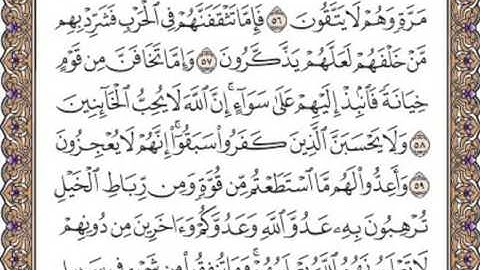 مَرَّةٍ وَهُمْ لَا يَتَّقُونَ ٥٦ فَإِمَّا تَثْقَفَنَّهُمْ فِي الْحَرْبِ فَشَرِّدْ بِهِم
مَّنْ خَلْفَهُمْ لَعَلَّهُمْ يَذَّكَّرُونَ ٥٧ وَإِمَّا تَخَافَنَّ مِن قَوْمٍ
خِيَانَةً فَانۢبِذْ إِلَيْهِمْ عَلَىٰ سَوَآءٍ ۚ إِنَّ اللَّهَ لَا يُحِبُّ الْخَآئِنِينَ
٥٨ وَلَا يَحْسَبَنَّ الَّذِينَ كَفَرُوا سَبَقُوٓا ۚ إِنَّهُمْ لَا يُعْجِزُونَ
٥٩ وَأَعِدُّوا لَهُم مَّا اسْتَطَعْتُم مِّن قُوَّةٍ وَمِن رِّبَاطِ الْخَيْلِ
تُرْهِبُونَ بِهِۦ عَدُوَّ اللَّهِ وَعَدُوَّكُمْ وَءَاخَرِينَ مِن دُونِهِمْ
لَا تَعْلَمُونَهُمُ اللَّهُ يَعْلَمُهُمْ ۚ وَمَا تُنفِقُوا مِن شَيْءٍ فِي سَبِيلِ